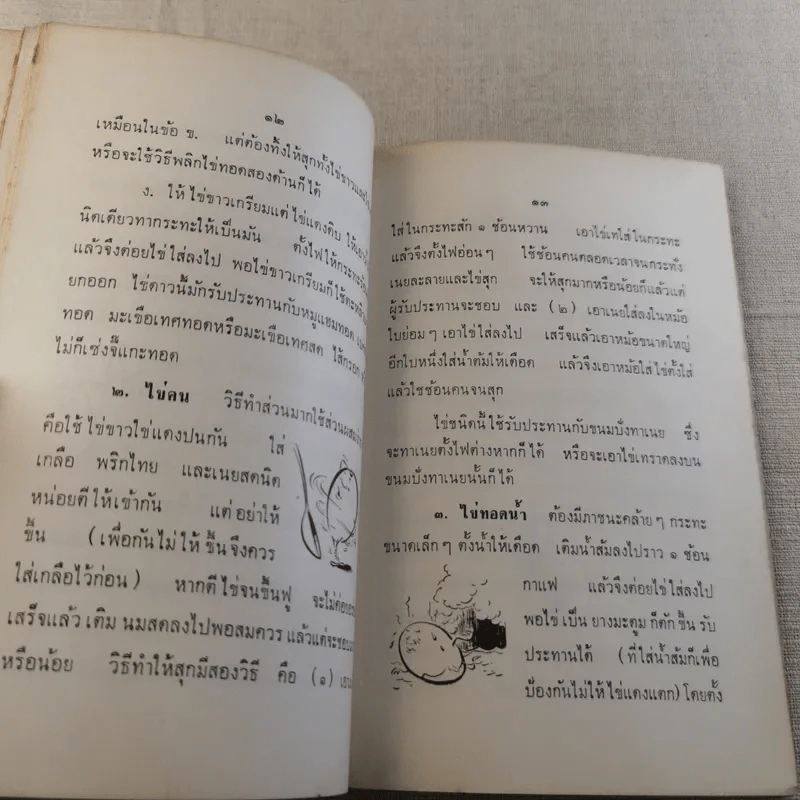 ๑๒
เหมือนในข้อ ข. แต่ต้องทิ้งให้สุกทั้งไข่ขาวและไข่
หรือจะใช้วิธีพลิกไข่ทอดสองด้านก็ได้
ง. ให้ไข่ขาวเกรียมแต่ไข่แดงดิบ ให้เอา
นิดเดียวทากระทะให้เป็นมัน ตั้งไฟให้กระทะร้อน
แล้วจึงต่อยไข่ใส่ลงไป พอไข่ขาวเกรียมก็ใช้ตะหลิว
ยกออก ไข่ดาวนี้มักรับประทานกับหมูแฮมทอด
ทอด มะเขือเทศทอดหรือมะเขือเทศสด ไส้กรอก
ไม่ก็เซ่งจี๊แกะทอด
๒. ไข่คน วิธีทำส่วนมากใช้ส่วนผสม
คือใช้ไข่ขาวไข่แดงปนกัน ใส่
เกลือ พริกไทย และเนยสดนิด
หน่อยตีให้เข้ากัน แต่อย่าให้
ขึ้น (เพื่อกันไม่ให้ขึ้นจึงควร
ใส่เกลือไว้ก่อน) หากตีไข่จนขึ้นฟู จะไม่ค่อย
เสร็จแล้วเติมนมสดลงไปพอสมควร แล้วแต่จะชอบ
หรือน้อย วิธีทำให้สุกมีสองวิธี คือ (๑)
๑๓
ใส่ในกระทะสัก ๑ ช้อนหวาน เอาไข่เทใส่ในกระทะ
แล้วจึงตั้งไฟอ่อนๆ ใช้ช้อนคนตลอดเวลาจนกระทั่ง
เนยละลายและไข่สุก จะให้สุกมากหรือน้อยก็แล้วแต่
ผู้รับประทานจะชอบ และ (๒) เอาเนยใส่ลงในหม้อ
ใบย่อมๆ เอาไข่ใส่ลงไป เสร็จแล้วเอาหม้อขนาดใหญ่
อีกใบหนึ่งใส่น้ำต้มให้เดือด แล้วจึงเอาหม้อใส่ไข่ตั้งใส่
แล้วใช้ช้อนคนจนสุก
ไข่ชนิดนี้ใช้รับประทานกับขนมปังทาเนย ซึ่ง
จะทาเนยตั้งไฟต่างหากก็ได้ หรือจะเอาไข่เทราดลงบน
ขนมปังทาเนยนั้นก็ได้
๓. ไข่ทอดน้ำ ต้องมีภาชนะคล้ายๆ กระทะ
ขนาดเล็กๆ ตั้งน้ำให้เดือด เติมน้ำส้มลงไปราว ๑ ช้อน
กาแฟ แล้วจึงต่อยไข่ใส่ลงไป
พอไข่เป็นยางมะตูมก็ตักขึ้นรับ
ประทานได้ (ที่ใส่น้ำส้มก็เพื่อ
ป้องกันไม่ให้ไข่แดงแตก) โดยตั้ง